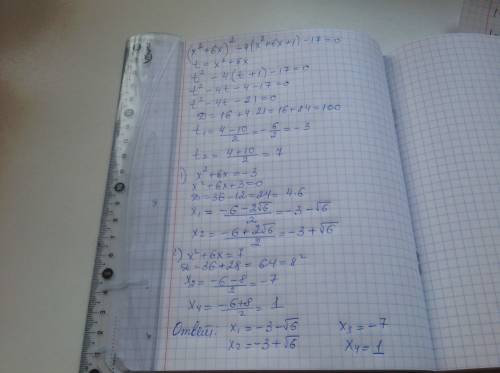 (x²+6x)²-4(x²+6x+1)-17=0
t=x²+6x
t²-4(t+1)-17=0
t²-4t-4-17=0
t²-4t-21=0
D=16+4·21=16+84=100
t₁=(4-10)/2=-6/2=-3
t₂=(4+10)/2=7
1) x²+6x=-3
x²+6x+3=0
D=36-12=24=4·6
x₁=(-6-2√6)/2=-3-√6
x₂=(-6+2√6)/2=-3+√6
2) x²+6x=7
D=36+28=64=8²
x₃=(-6-8)/2=-7
x₄=(-6+8)/2=1
Ответ: x₁=-3-√6 x₃=-7
x₂=-3+√6 x₄=1